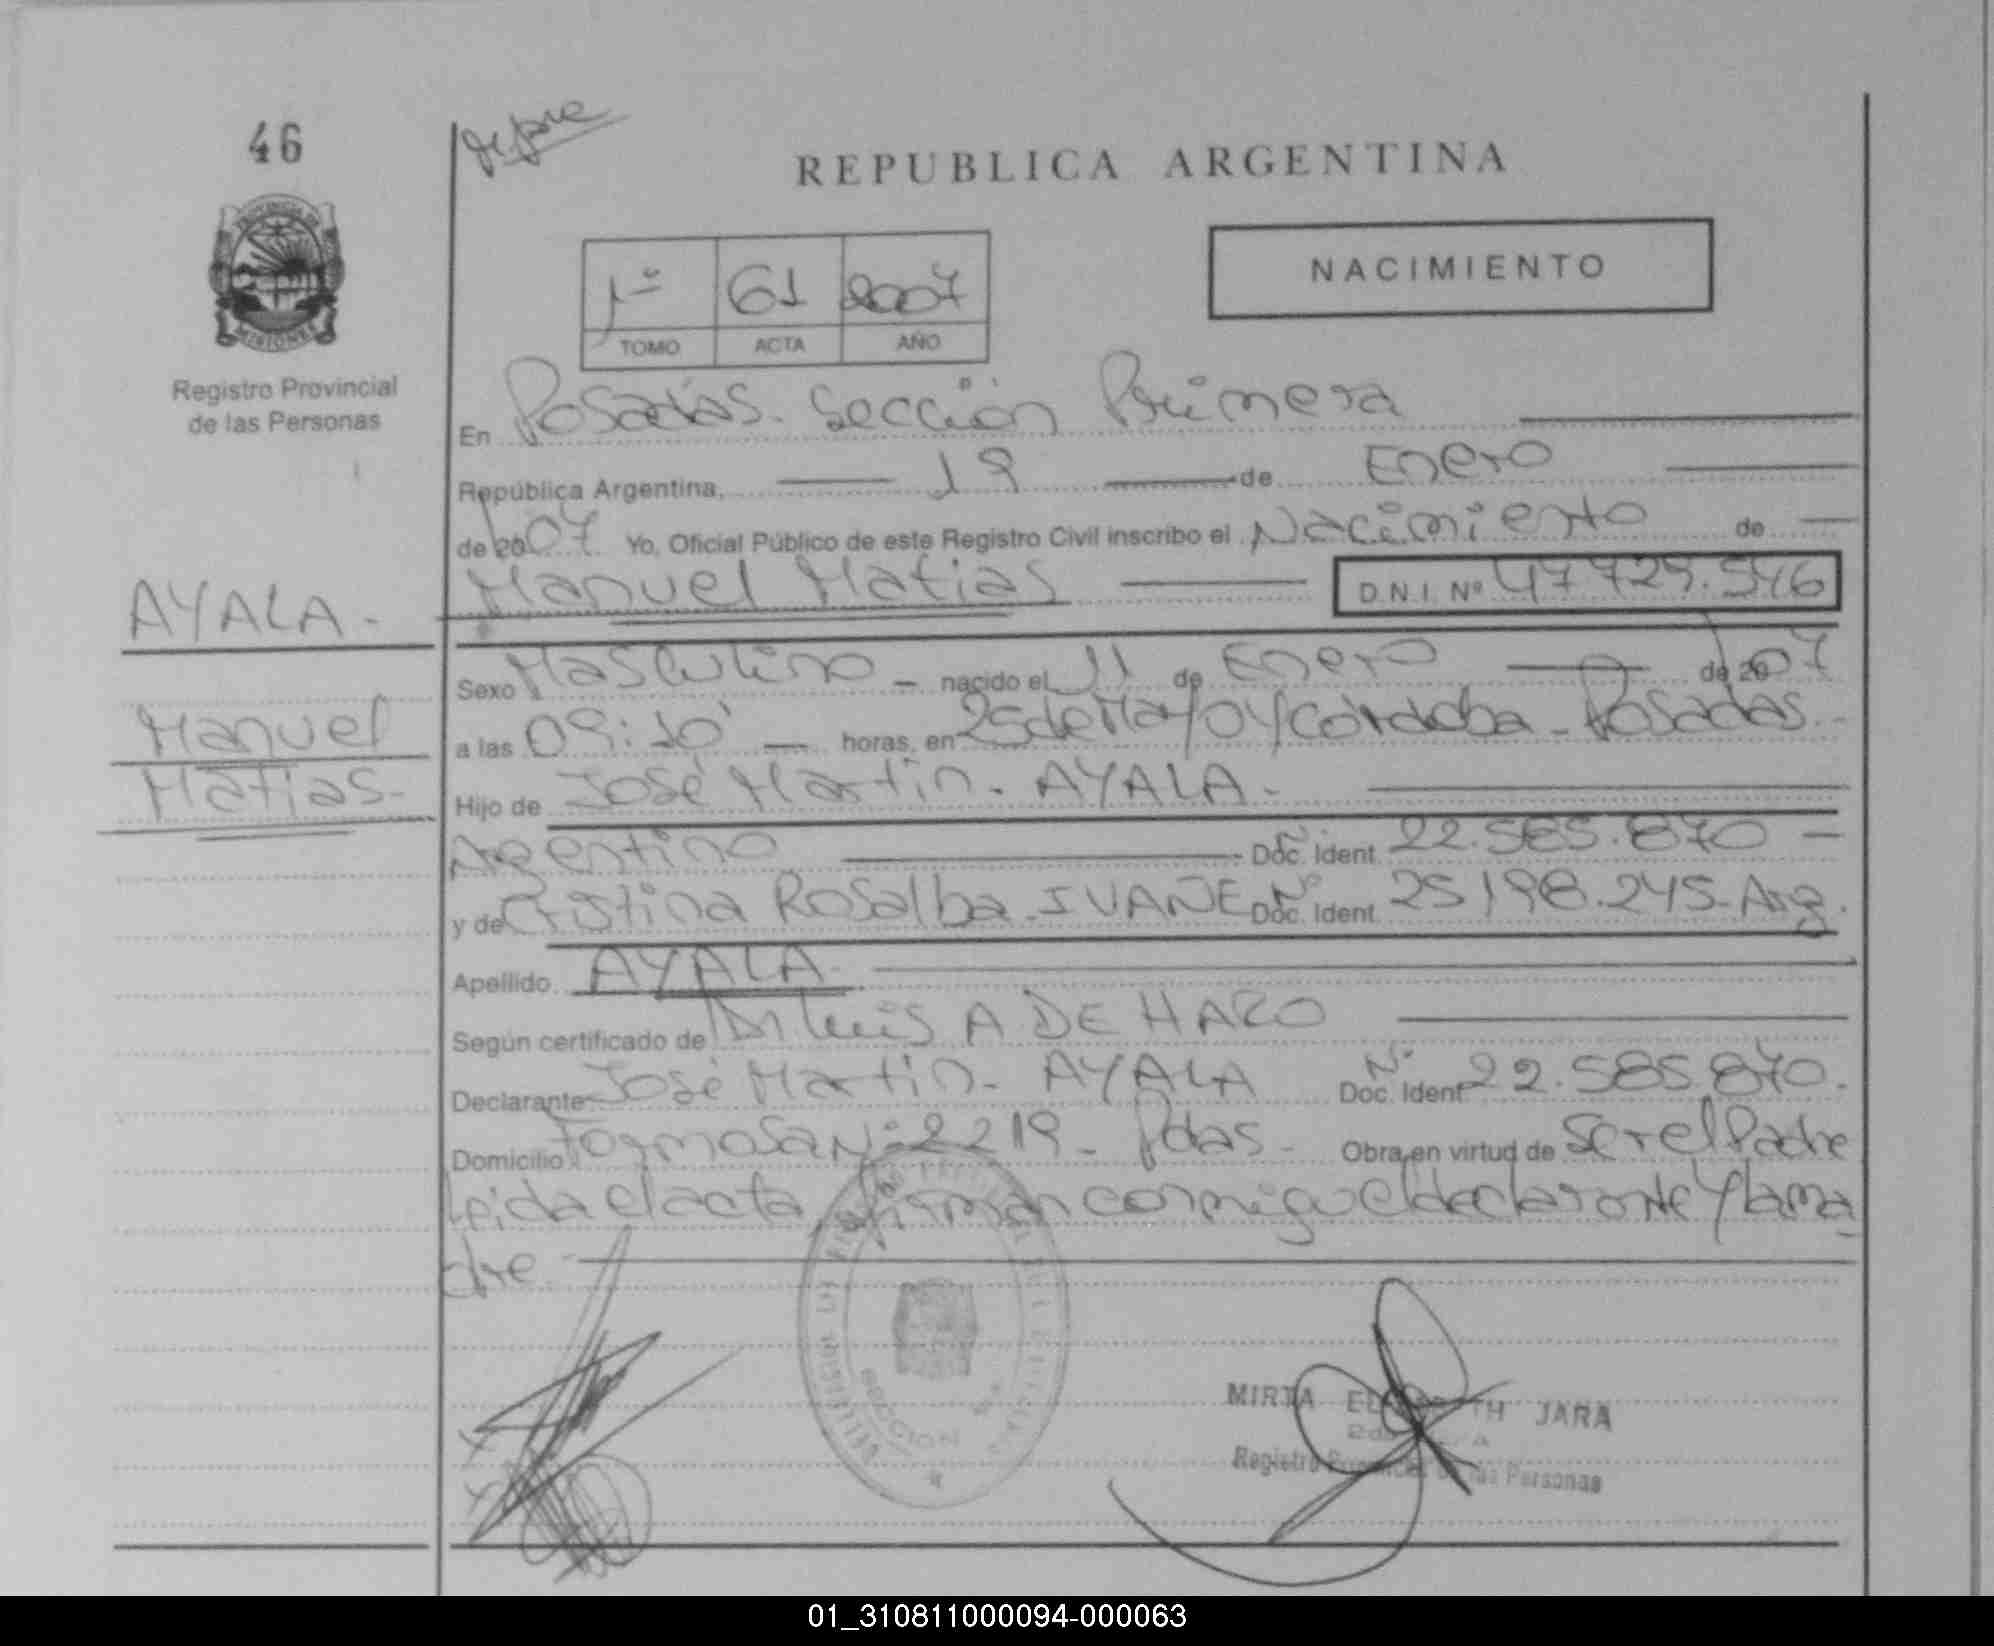 46
REPUBLICA ARGENTINA
NACIMIENTO
1º 61 2007
TOMO ACTA AÑO
PROVINCIA DE
MISIONES
Registro Provincial
de las Personas
En Posadas. Sección Primera
República Argentina, 19 de Enero
de 2007 Yo, Oficial Público de este Registro Civil inscribo el Nacimiento de
AYALA.-
Manuel Matias D.N.I. Nº 47 729.546
Sexo Masculino - nacido el 11 de Enero de 2007
Manuel
a las 09:10' horas, en 25 de Mayo y Córdoba - Posadas.
Matias-
Hijo de José Martin. AYALA.
Argentino Doc. Ident. Nº 22.585.870 -
y de Cristina Rosalba IVAÑE Doc. Ident. Nº 25198.245-Arg.
Apellido AYALA.
Según certificado de Dr Luis A DE HARO
Declarante José Martin- AYALA Doc. Ident Nº 22.585.870.
Domicilio Formosa Nº 2219- Pdas- Obra en virtud de Ser el Padre
leida el acta, firman conmigo el declarante y la ma
dre.
SECCION
MIRTA JARA
Registro Provincial de las Personas
01_310811000094-000063